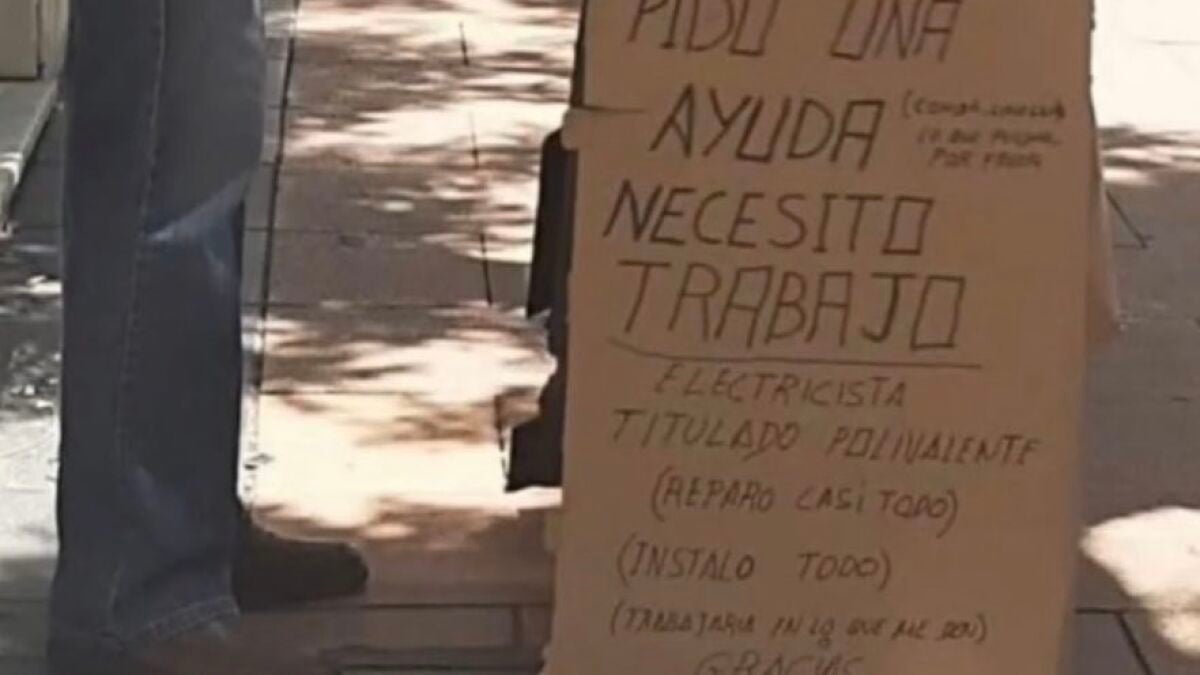 PIDO UNA
AYUDA
LO QUE
POR FAVOR
NECESITO
TRABAJO
ELECTRICISTA
TITULADO POLIVALENTE
(REPARO CASI TODO)
(INSTALO TODO)
(TRABAJARIA EN LO QUE ME DEN)
GRACIAS